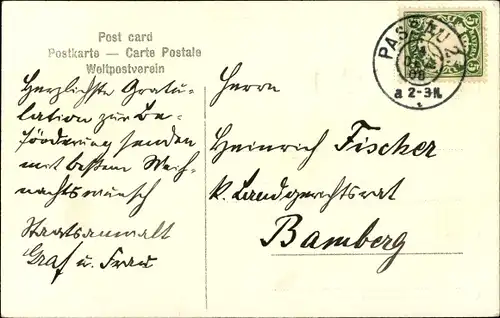 Post card
Postkarte — Carte Postale
Weltpostverein
Herzlichste Gratu-
lation zur Be-
förderung senden
mit bestem Weih-
nachtswunsch
Staatsanwalt
Graf u. Frau
PASSAU 2
a 2-3N.
Herrn
Heinrich Fischer
k. Landgerichtsrat
Bamberg